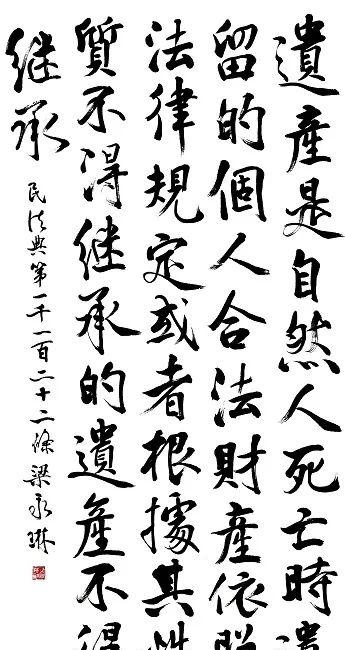 遺產是自然人死亡時遺
留的個人合法財產依照
法律規定或者根據其性
質不得继承的遺產不得
继承
民法典第一千一百二十二條梁永琳